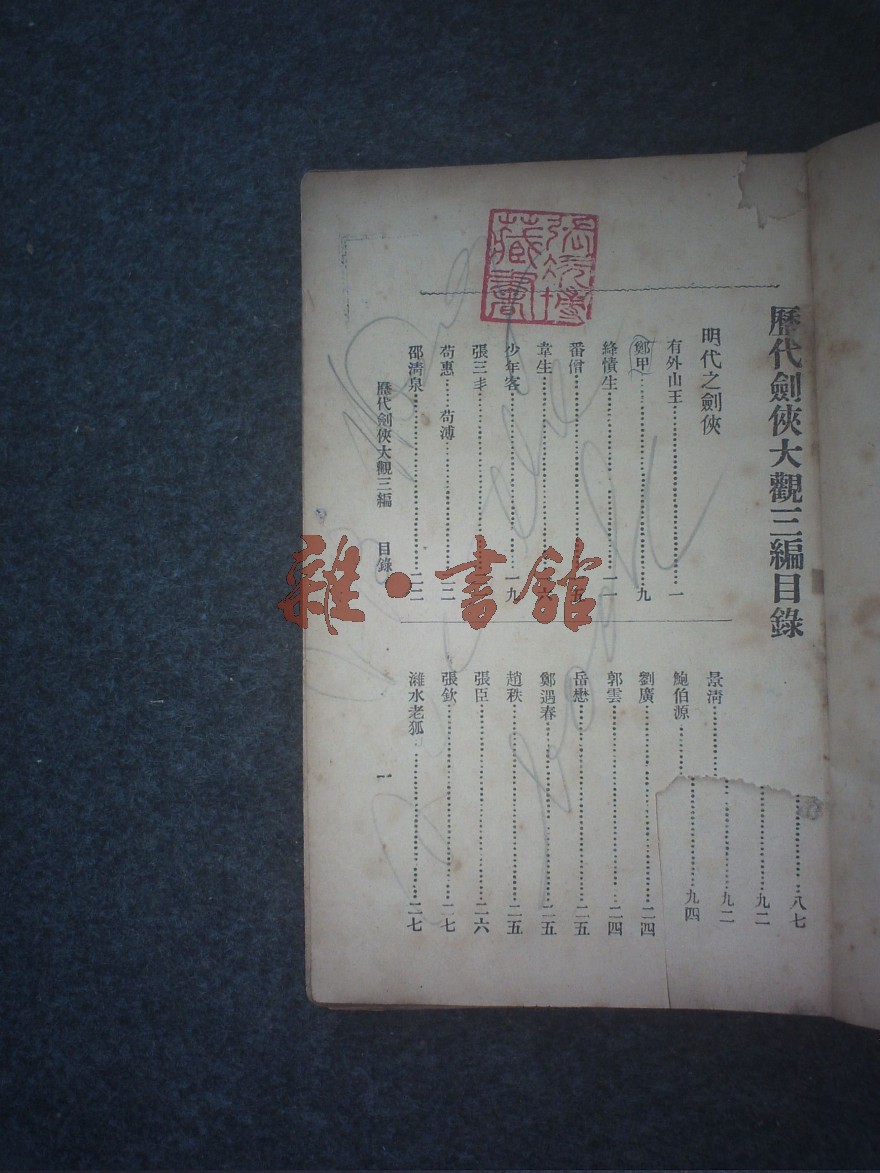 歷代劍俠大觀三編目錄
明代之劍俠
有外山王……一
鄭甲……九
絳幘生……一一
番僧……
韋生……
少年客……一九
張三丰……
苟惠……苟溥……
邵清泉……
八七
九二
景清……九二
鮑伯源……九四
劉廣……二四
郭雲……二四
岳懋……二五
鄭遇春……二五
趙秩……二五
張臣……二六
張欽……二七
濰水老狐……二七
歷代劍俠大觀三編 目錄 一
藏書
雜·書館